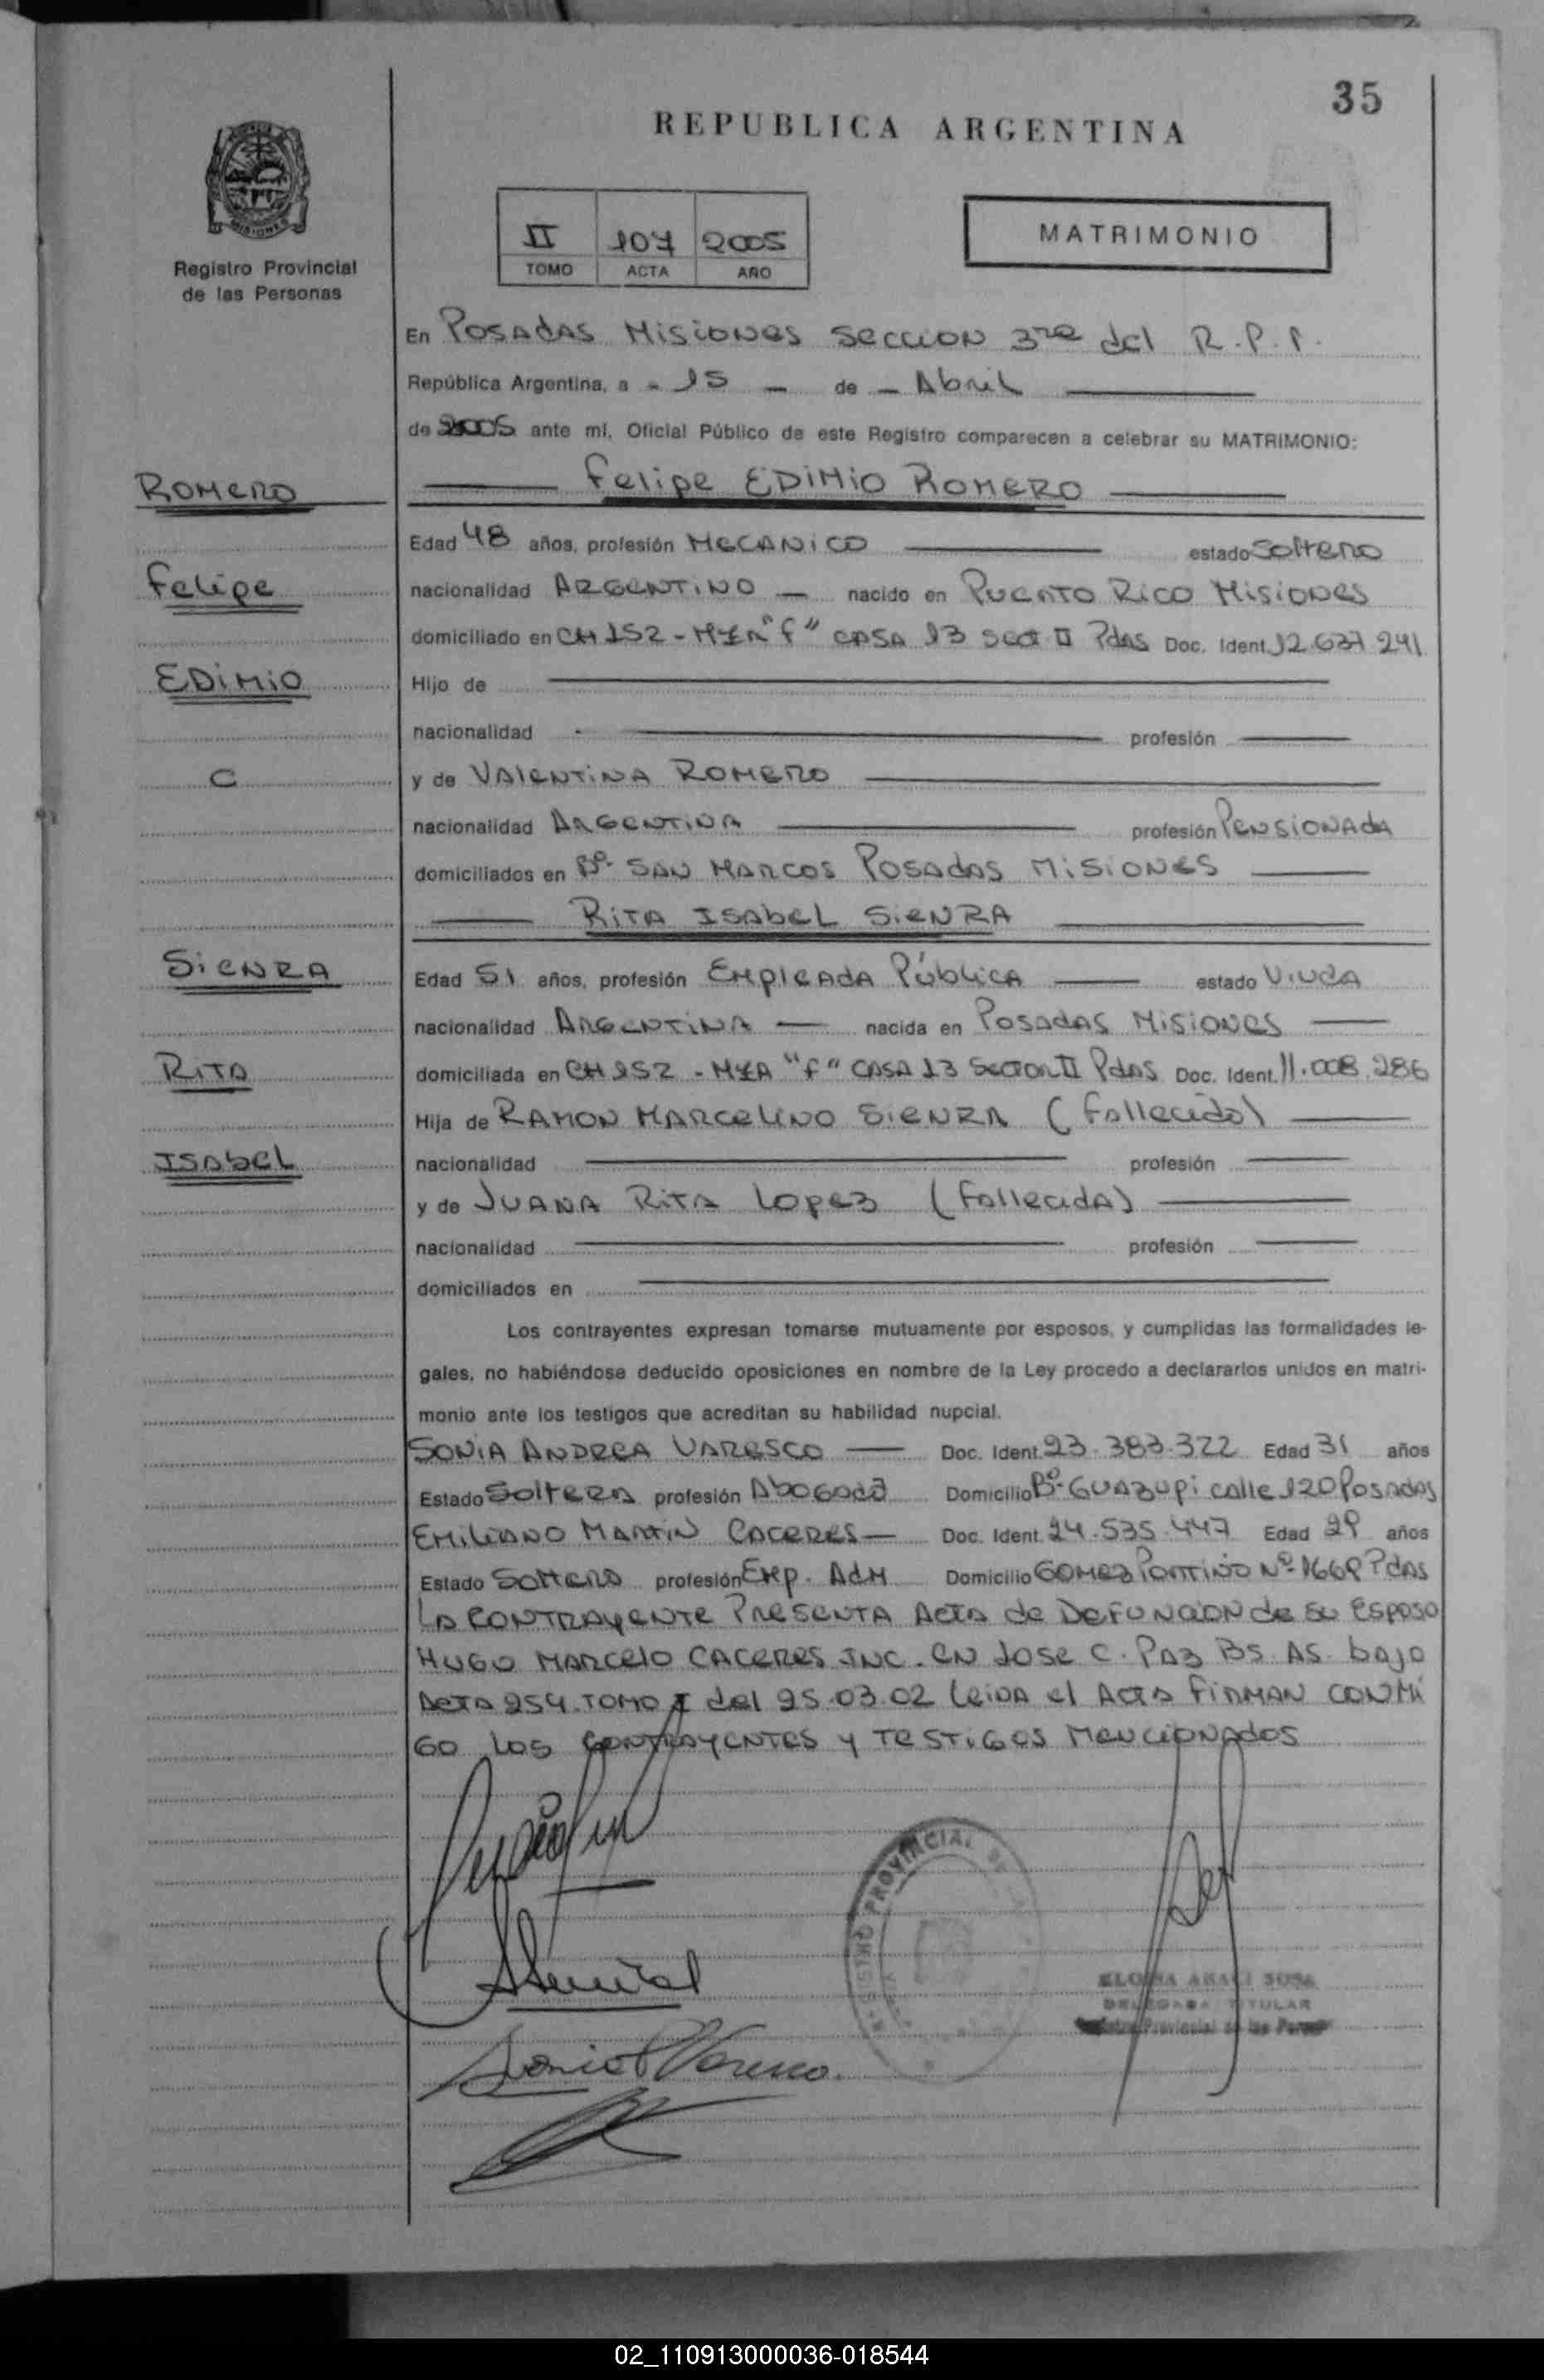 35
REPUBLICA ARGENTINA
MISIONES
Registro Provincial
de las Personas
II 107 2005
TOMO ACTA AÑO
MATRIMONIO
En POSADAS MISIONES SECCION 3ra del R.P.P.
República Argentina, a - 15 - de - Abril
de 2005 ante mí, Oficial Público de este Registro comparecen a celebrar su MATRIMONIO:
ROMERO
Felipe EDIMIO ROMERO
Edad 48 años, profesión MECANICO estado Soltero
Felipe
nacionalidad ARGENTINO - nacido en PUERTO RICO MISIONES
domiciliado en CH 152 - MZA "F" CASA 13 Sect II Pdas Doc. Ident. 12.637.241
EDIMIO
Hijo de
nacionalidad profesión
C
y de VALENTINA ROMERO
nacionalidad ARGENTINA profesión PENSIONADA
domiciliados en Bº. SAN MARCOS POSADAS MISIONES
RITA ISABEL SIENRA
SIENRA
Edad 51 años, profesión EMPLEADA PÚBLICA estado VIUDA
nacionalidad ARGENTINA - nacida en POSADAS MISIONES
RITA
domiciliada en CH 152 - MZA "F" CASA 13 SECTOR II Pdas Doc. Ident. 11.008.286
Hija de RAMON MARCELINO SIENRA (Fallecido)
ISABEL
nacionalidad profesión
y de JUANA RITA LOPEZ (Fallecida)
nacionalidad profesión
domiciliados en
Los contrayentes expresan tomarse mutuamente por esposos, y cumplidas las formalidades le-
gales, no habiéndose deducido oposiciones en nombre de la Ley procedo a declararlos unidos en matri-
monio ante los testigos que acreditan su habilidad nupcial.
SONIA ANDREA VARESCO Doc. Ident. 23.383.322 Edad 31 años
Estado Soltera profesión Abogada Domicilio Bº. GUAZUPI calle 120 Posadas
EMILIANO MARTIN CACERES Doc. Ident. 24.535.447 Edad 29 años
Estado Soltero profesión Emp. Adm Domicilio GOMEZ PORTIÑO Nº 1669 Pdas
LA CONTRAYENTE PRESENTA ACTA de DEFUNCION de SU ESPOSO
HUGO MARCELO CACERES INC. EN JOSE C. PAZ BS. AS. bajo
ACTA 254. TOMO I del 25.03.02 Leida el ACTA FIRMAN CONMI
GO LOS CONTRAYENTES Y TESTIGOS MENCIONADOS
REGISTRO PROVINCIAL DE
ELOISA ARACI SOSA
DELEGADA TITULAR
Registro Provincial de las Personas
02_110913000036-018544